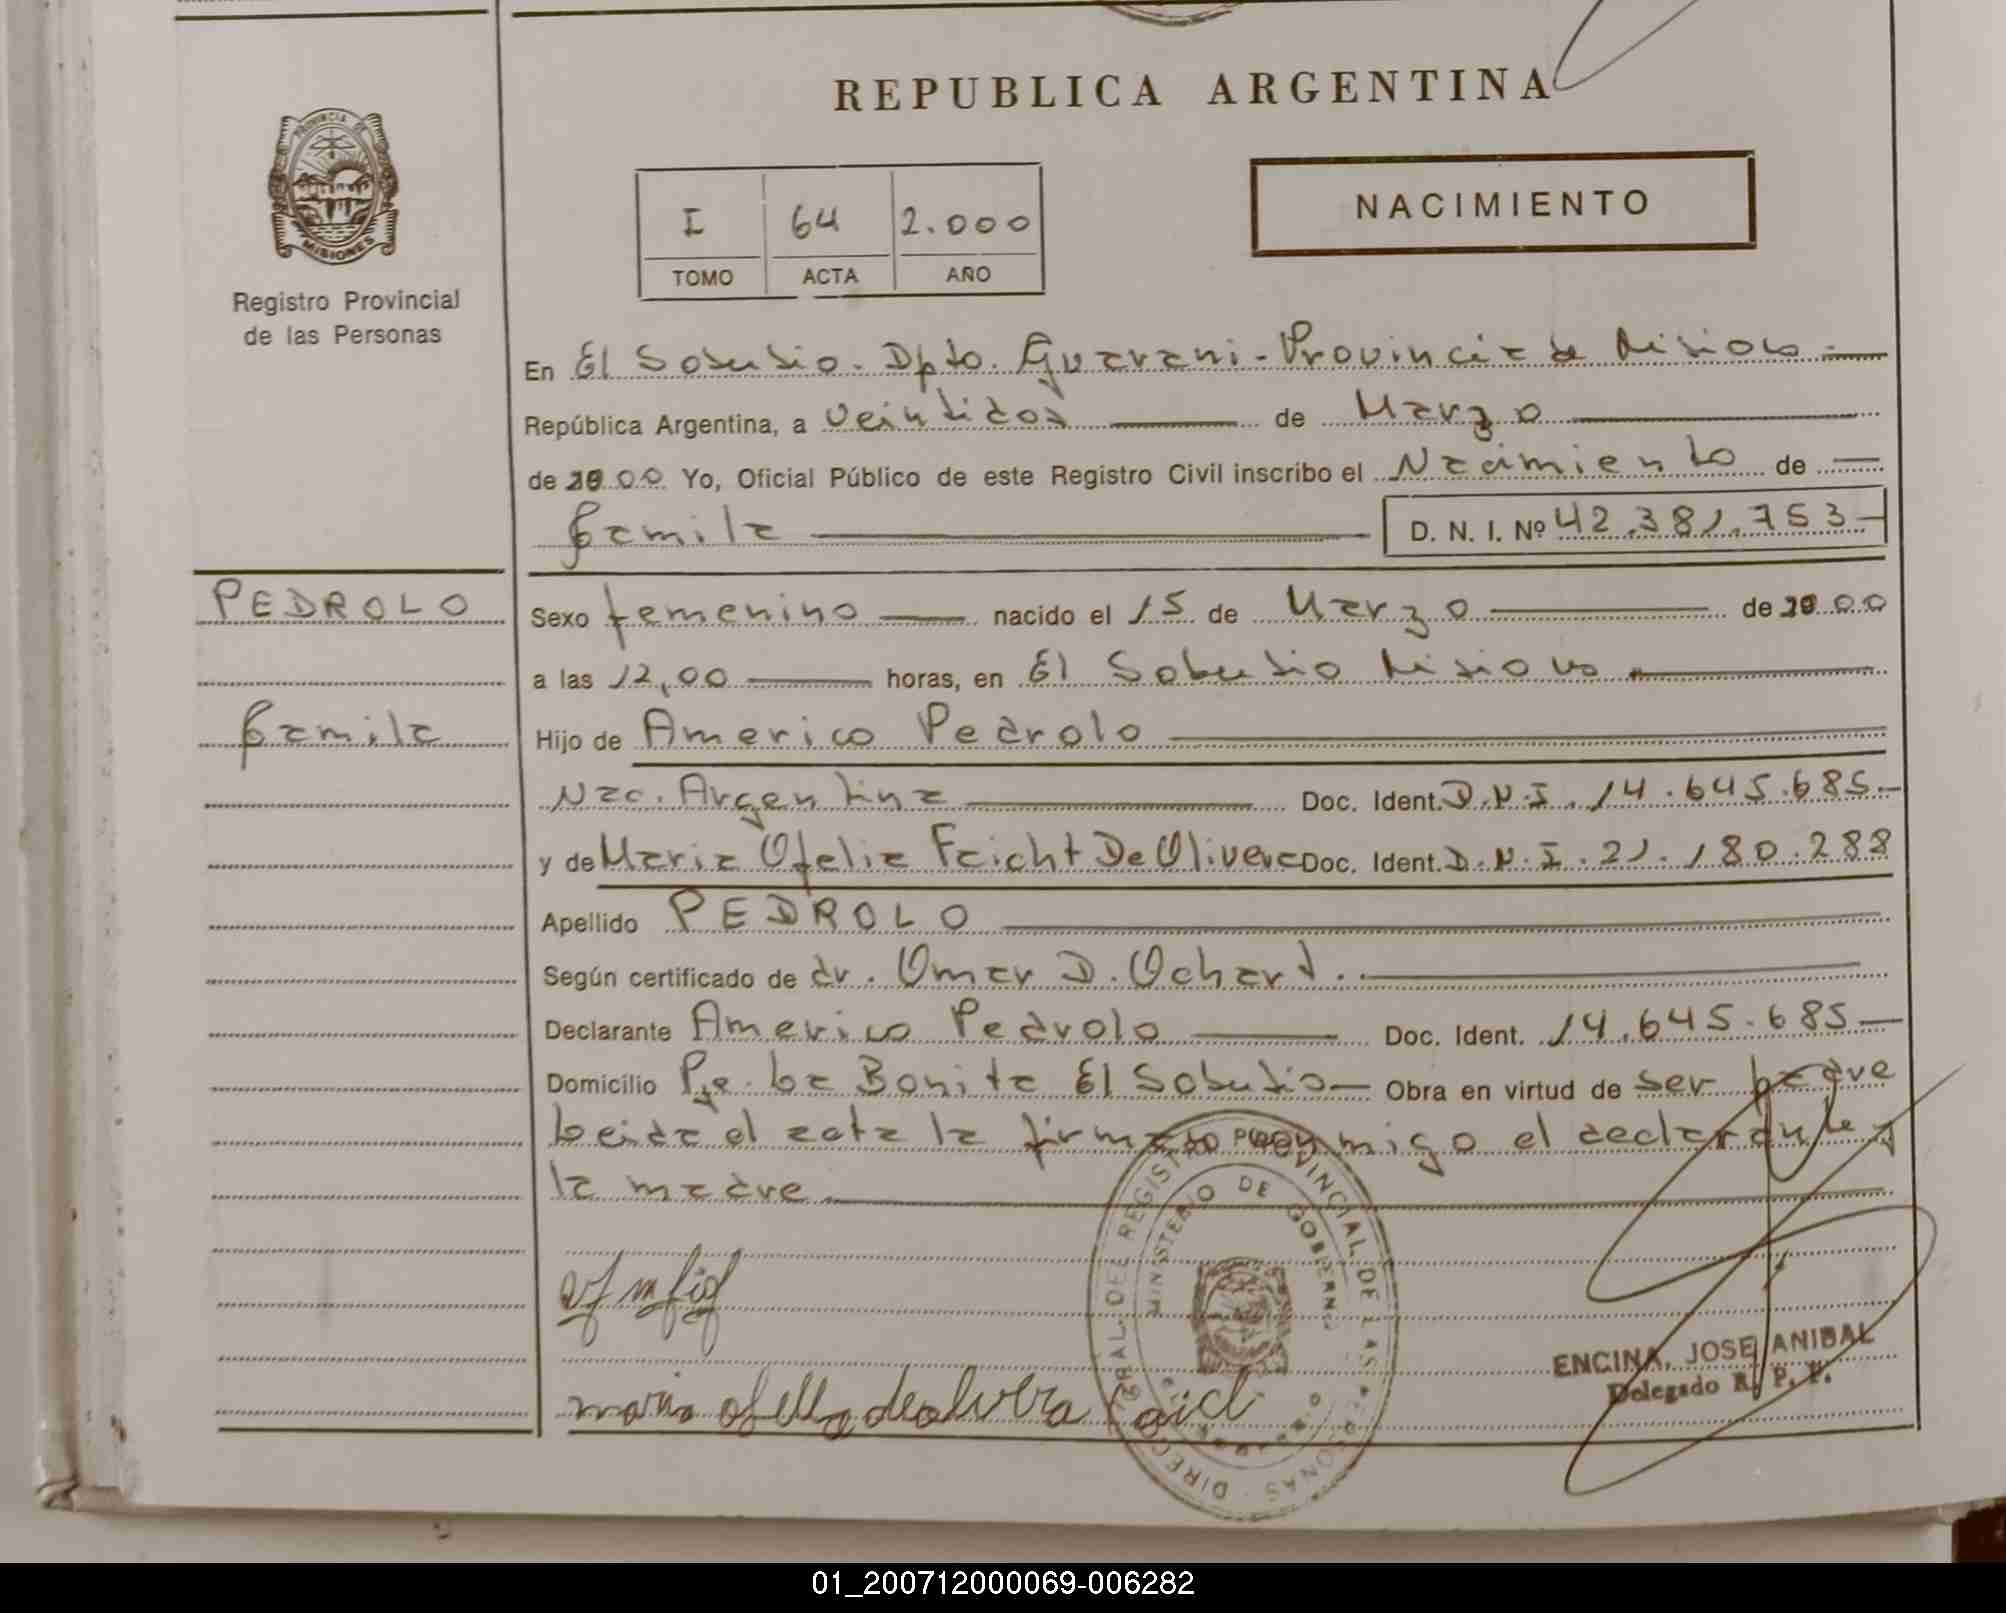 REPUBLICA ARGENTINA
PROVINCIA DE
MISIONES
Registro Provincial
de las Personas
I 64 2.000
TOMO ACTA AÑO
NACIMIENTO
En El Soberbio. Dpto. Guarani - Provincia de Misiones
República Argentina, a veintidos de Marzo
de 2000 Yo, Oficial Público de este Registro Civil inscribo el Nacimiento de
Camila D. N. I. Nº 42.381.753
PEDROLO
Camila
Sexo femenino nacido el 15 de Marzo de 2000
a las 12,00 horas, en El Soberbio Misiones
Hijo de Americo Pedrolo
Nac. Argentina Doc. Ident. D.N.I. 14.645.685
y de Maria Ofelia Faicht De Olivera Doc. Ident. D.N.I. 21.180.288
Apellido PEDROLO
Según certificado de dr. Omar D.
Declarante Americo Pedrolo Doc. Ident. 14.645.685
Domicilio Pje. La Bonita El Soberbio Obra en virtud de ser padre
Leida el acta la firman conmigo el declarante y
la madre
DIRECCION GRAL. DEL REGISTRO PROVINCIAL DE LAS PERSONAS
MINISTERIO DE GOBIERNO
ENCINA, JOSE ANIBAL
Delegado R. P. P.
01_200712000069-006282